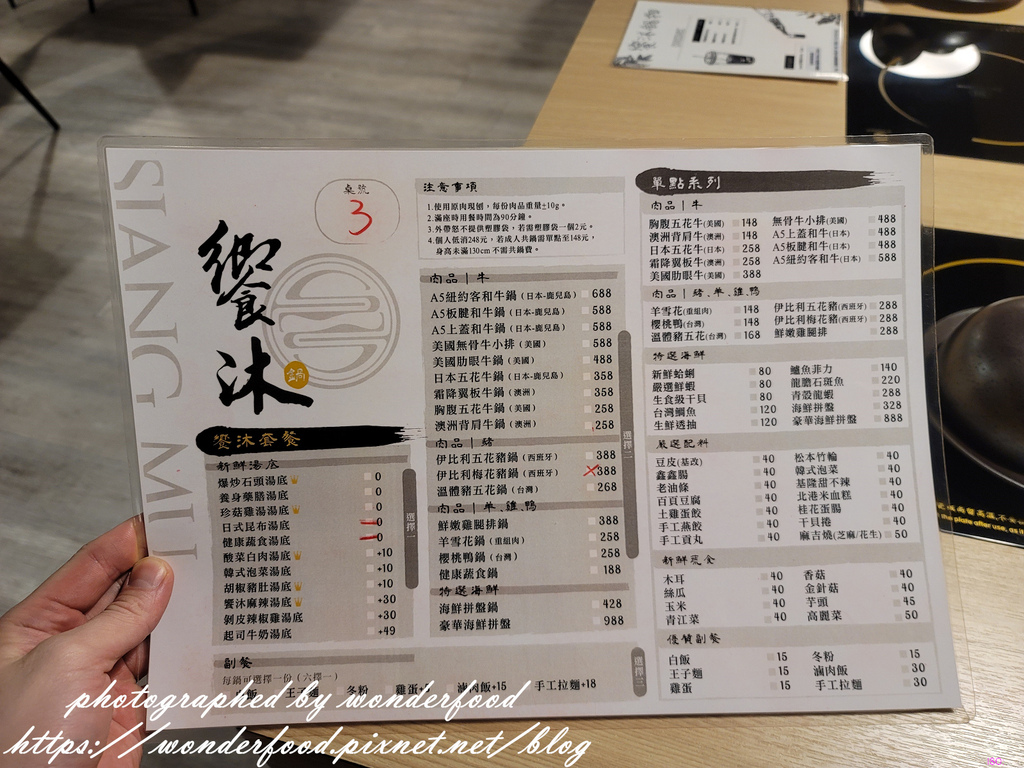 SIANG MU
饗沐
鍋
桌號
3
注意事項
1.使用原肉現刨,每份肉品重量±10g。
2.滿座時用餐時間為90分鐘。
3.外帶恕不提供塑膠袋,若需塑膠袋一個2元。
4.個人低消248元,若成人共鍋需單點至148元,
身高未滿130cm 不需共鍋費。
饗沐套餐
新鮮湯底
爆炒石頭湯底 0
養身藥膳湯底 0
珍菇雞湯湯底 0
日式昆布湯底 0
健康蔬食湯底 0
酸菜白肉湯底 +10
韓式泡菜湯底 +10
胡椒豬肚湯底 +10
饗沐麻辣湯底 +30
剝皮辣椒雞湯底 +30
起司牛奶湯底 +49
選擇一
肉品|牛
A5紐約客和牛鍋(日本-鹿兒島) 688
A5板腱和牛鍋(日本-鹿兒島) 588
A5上蓋和牛鍋(日本-鹿兒島) 588
美國無骨牛小排(美國) 588
美國肋眼牛鍋(美國) 488
日本五花牛鍋(日本-鹿兒島) 358
霜降翼板牛鍋(澳洲) 358
胸腹五花牛鍋(美國) 258
澳洲背肩牛鍋(澳洲) 258
肉品|豬
伊比利五花豬鍋(西班牙) 388
伊比利梅花豬鍋(西班牙) 388
溫體豬五花鍋(台灣) 268
肉品|羊、雞、鴨
鮮嫩雞腿排鍋 388
羊雪花鍋(重組肉) 258
櫻桃鴨鍋(台灣) 258
健康蔬食鍋 188
特選海鮮
海鮮拼盤鍋 428
豪華海鮮拼盤 988
選擇二
副餐
每鍋可選擇一份(六擇一)
白飯 王子麵 冬粉 雞蛋+5 滷肉飯+15 手工拉麵+18
選擇三
單點系列
肉品|牛
胸腹五花牛(美國) 148 無骨牛小排(美國) 488
澳洲背肩牛(澳洲) 148 A5上蓋和牛(日本) 488
日本五花牛(日本) 258 A5板腱和牛(日本) 488
霜降翼板牛(澳洲) 258 A5紐約客和牛(日本) 588
美國肋眼牛(美國) 388
肉品|豬、羊、雞、鴨
羊雪花(重組肉) 148 伊比利五花豬(西班牙) 288
櫻桃鴨(台灣) 148 伊比利梅花豬(西班牙) 288
溫體豬五花(台灣) 168 鮮嫩雞腿排 288
特選海鮮
新鮮蛤蜊 80 鱸魚菲力 140
嚴選鮮蝦 80 龍膽石斑魚 220
生食級干貝 80 青殼龍蝦 288
台灣鯛魚 120 海鮮拼盤 328
生鮮透抽 120 豪華海鮮拼盤 888
嚴選配料
豆皮(基改) 40 松本竹輪 40
鑫鑫腸 40 韓式泡菜 40
老油條 40 基隆甜不辣 40
百頁豆腐 40 北港米血糕 40
土雞蛋餃 40 桂花蛋腸 40
手工燕餃 40 干貝捲 40
手工貢丸 40 麻吉燒(芝麻/花生) 50
新鮮蔬食
木耳 40 香菇 40
絲瓜 40 金針菇 40
玉米 40 芋頭 45
青江菜 40 高麗菜 50
優質副餐
白飯 15 冬粉 15
王子麵 15 滷肉飯 30
雞蛋 15 手工拉麵 30
the plate after use, as it
photographed by wonderfood
https://wonderfood.pixnet.net/blog